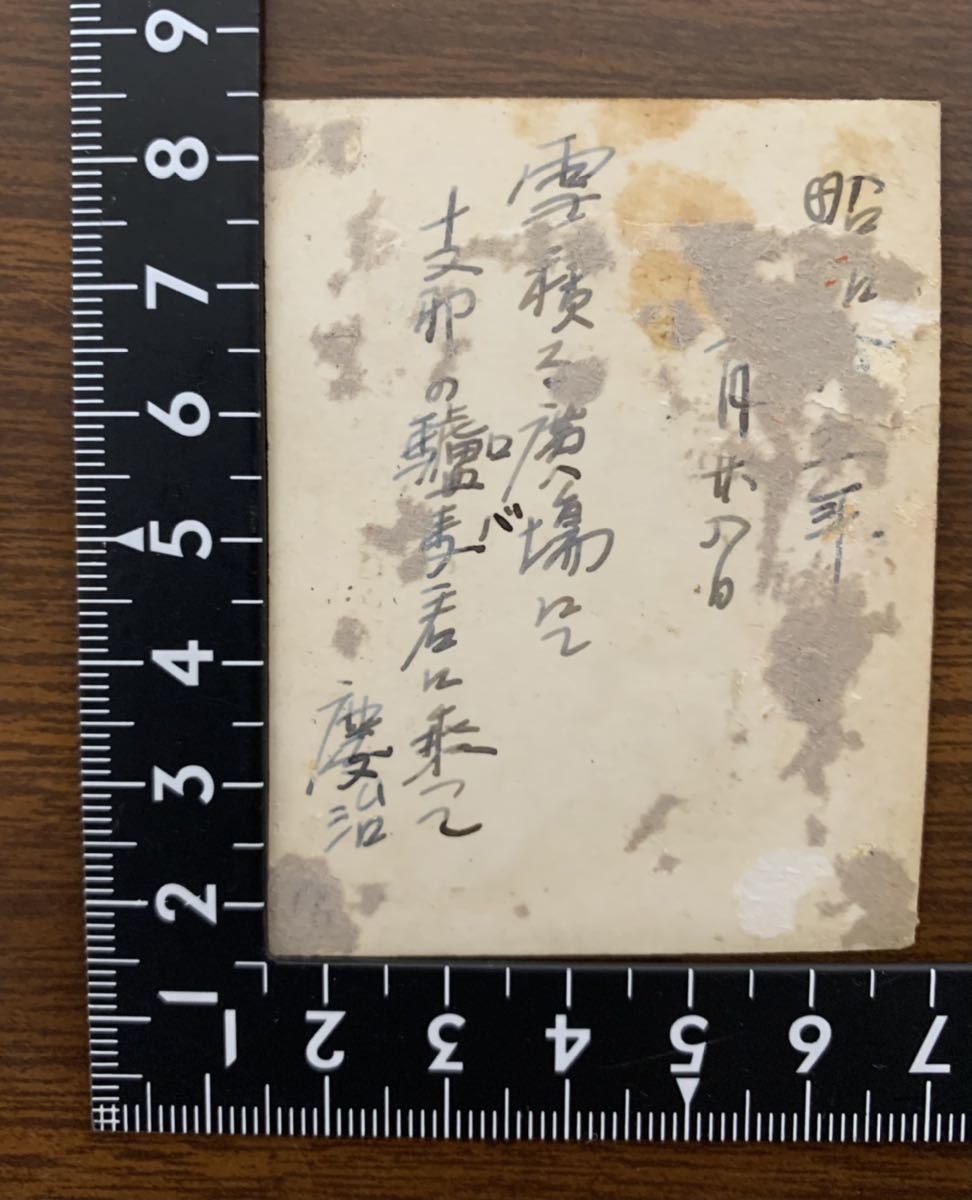 昭和 年
月廿八日
雪積る廣場にて
支那の驢馬君に乗って
ロバ
慶治
9
8
7
6
5
4
3
2
1
1 2 3 4 5 6 7